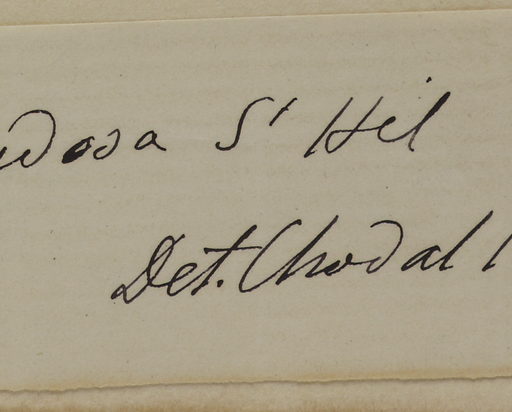 dosa S' Hil
Det. Chodal